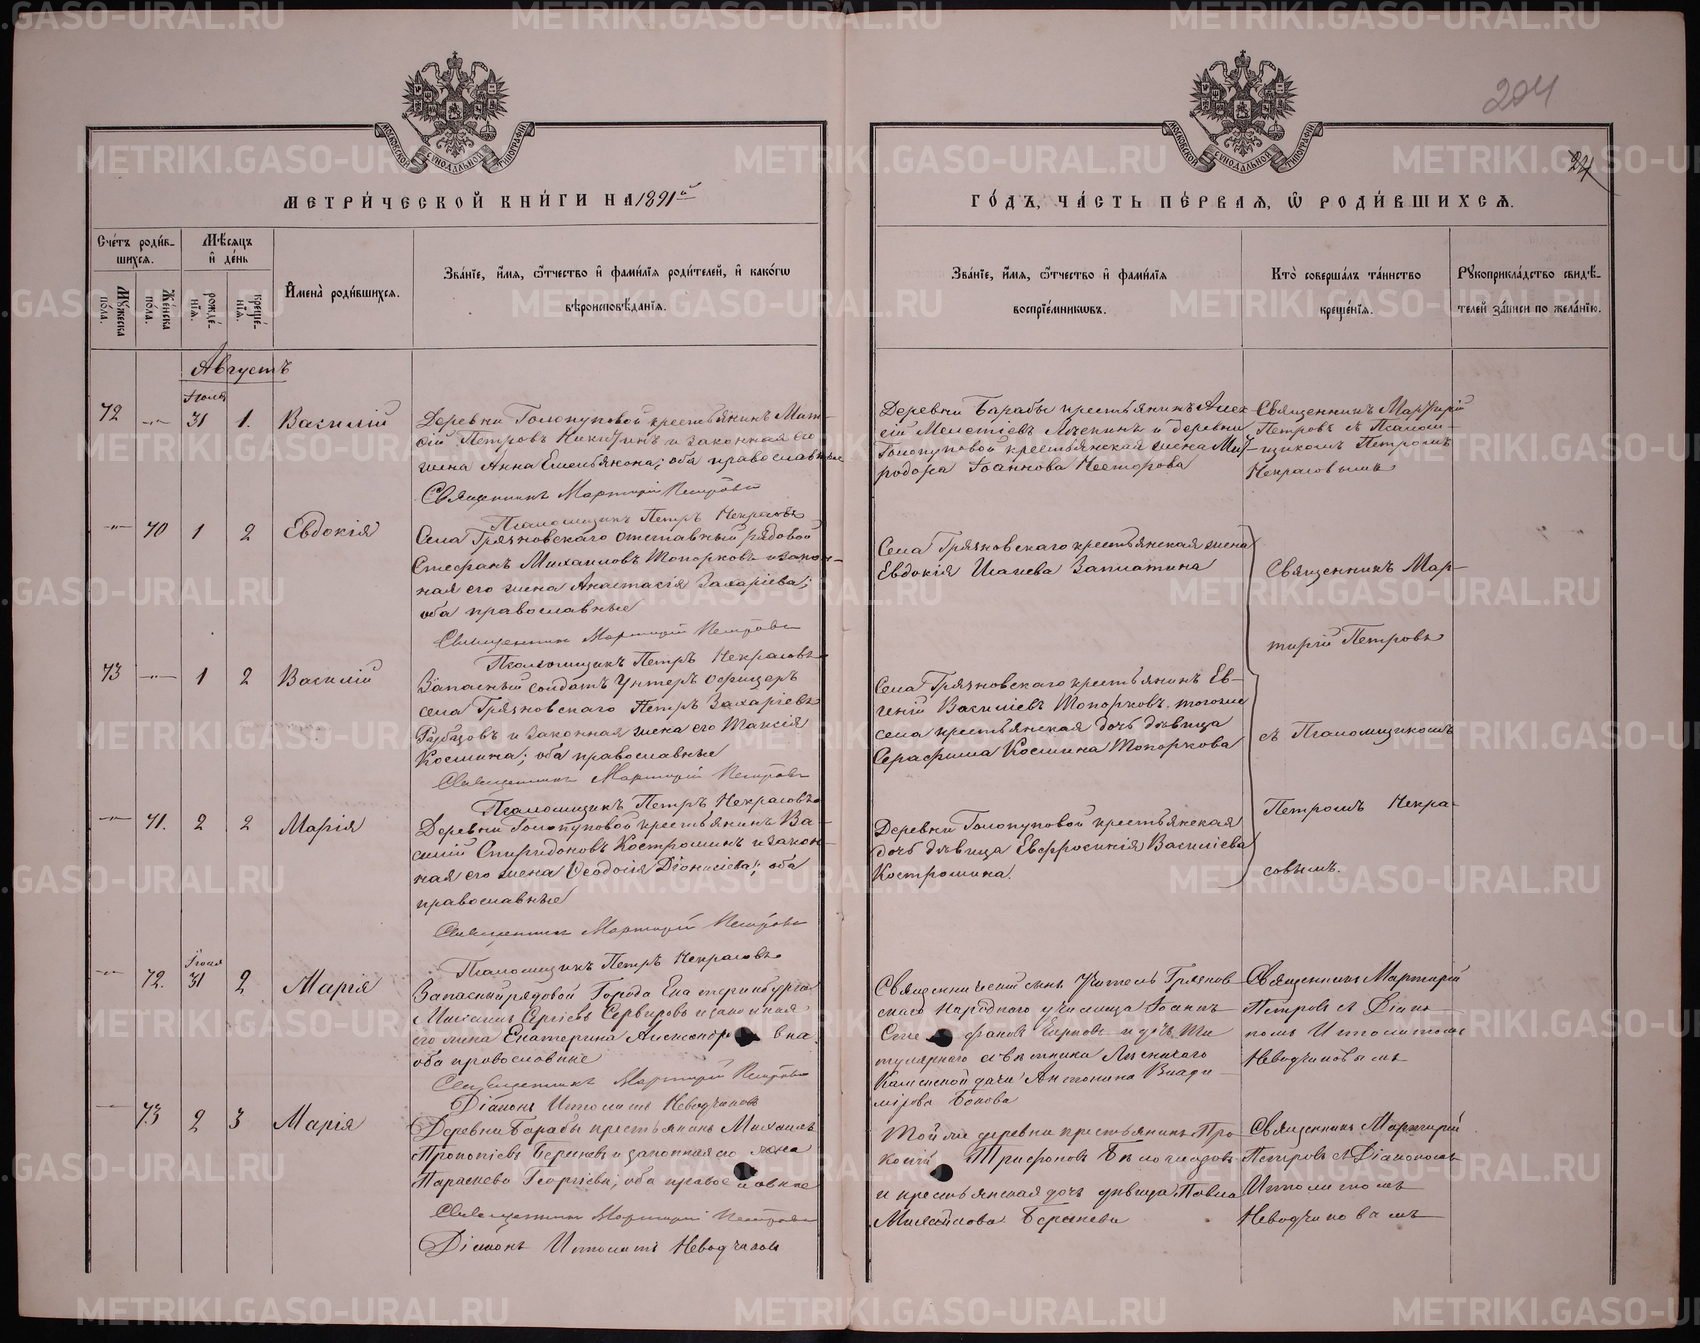 204
24
МЕТРИ́ЧЕСКОЙ КНИ́ГИ НА 1891й
ГО́ДЪ, ЧА́СТЬ ПЕ́РВАЯ, Ѿ РОДИ́ВШИХСЯ.
Сче́тъ роди́в-
шихся.
Му́жеска по́ла.
Же́нска по́ла.
Мѣ́сяцъ
и де́нь
рожде́-
нїя.
креще́-
нїя.
Имена̀ роди́вшихся.
Зва́нїе, и́мя, ѻ́тчество и фами́лїя роди́телей, и како́гѡ
вѣроисповѣ́данїя.
Зва́нїе, и́мя, ѻ́тчество и фами́лїя
воспрїе́мникѡвъ.
Кто̀ соверша́лъ та́инство
креще́нїя.
Рукоприкла́дство свидѣ́-
телей за́писи по жела́нїю.
Августъ
72
Іюля
31
1.
Василій
Деревни Голопуповой крестьянинъ Мат-
ѳій Петровъ Никитинъ и законная его
жена Анна Емельянова; оба православные
Священникъ Мартирій Петровъ
Псаломщикъ Петръ Некрасовъ
Деревни Барабы крестьянинъ Алек-
сій Мелетіевъ и деревни
Голопуповой крестьянская жена Мит-
родора Іоаннова Нестерова
Священникъ Мартирій
Петровъ съ Псалом-
щикомъ Петромъ
Некрасовымъ
70
1
2
Евдокія
Села Грязновскаго отставный рядовой
Стефанъ Михаиловъ Топорковъ и закон-
ная его жена Анастасія Захаріева;
оба православные
Священникъ Мартирій Петровъ
Псаломщикъ Петръ Некрасовъ
Села Грязновскаго крестьянская жена
Евдокія Исаіева Заплатина
Священникъ Мар-
тирій Петровъ
съ Псаломщикомъ
Петромъ Некра-
совымъ.
73
1
2
Василій
Запасный солдатъ Унтеръ офицеръ
села Грязновскаго Петръ Захаріевъ
и законная жена его Таисія
Космина; оба православные
Священникъ Мартирій Петровъ
Псаломщикъ Петръ Некрасовъ
Села Грязновскаго крестьянинъ Ев-
геній Василіевъ Топорковъ. тогоже
села крестьянская дочь дѣвица
Серафима Космина Топоркова
71.
2
2
Марія
Деревни Голопуповой крестьянинъ Ва-
силій Спиридоновъ Костроминъ и закон-
ная его жена Ѳеодосія Діонисіева; оба
православные
Священникъ Мартирій Петровъ
Псаломщикъ Петръ Некрасовъ
Деревни Голопуповой крестьянская
дочь дѣвица Евфросинія Василіева
Костромина.
72.
Іюля
31
2
Марія
Запасный рядовой Города Екатеринбурга
Михаилъ Сергіевъ и законная
его жена Екатерина Александровна.
оба православные
Священникъ Мартирій Петровъ
Діаконъ Ипполитъ Неводчиковъ
Священническій сынъ Учитель Грязнов-
скаго Народнаго училища Іоаннъ
Стефановъ и дочь Ти-
тулярнаго совѣтника
Каменской дачи Антонина Влади-
мірова
Священникъ Мартирій
Петровъ съ Діако-
номъ Ипполитомъ
Неводчиковымъ
73
2
3
Марія
Деревни Барабы крестьянинъ Михаилъ
Прокопіевъ и законная его жена
Параскева Георгіева; оба православные
Священникъ Мартирій Петровъ
Діаконъ Ипполитъ Неводчиковъ
Той же деревни крестьянинъ Про-
копій Трифоновъ
и крестьянская дочь дѣвица Павла
Михайлова
Священникъ Мартирій
Петровъ съ Діакономъ
Ипполитомъ
Неводчиковымъ